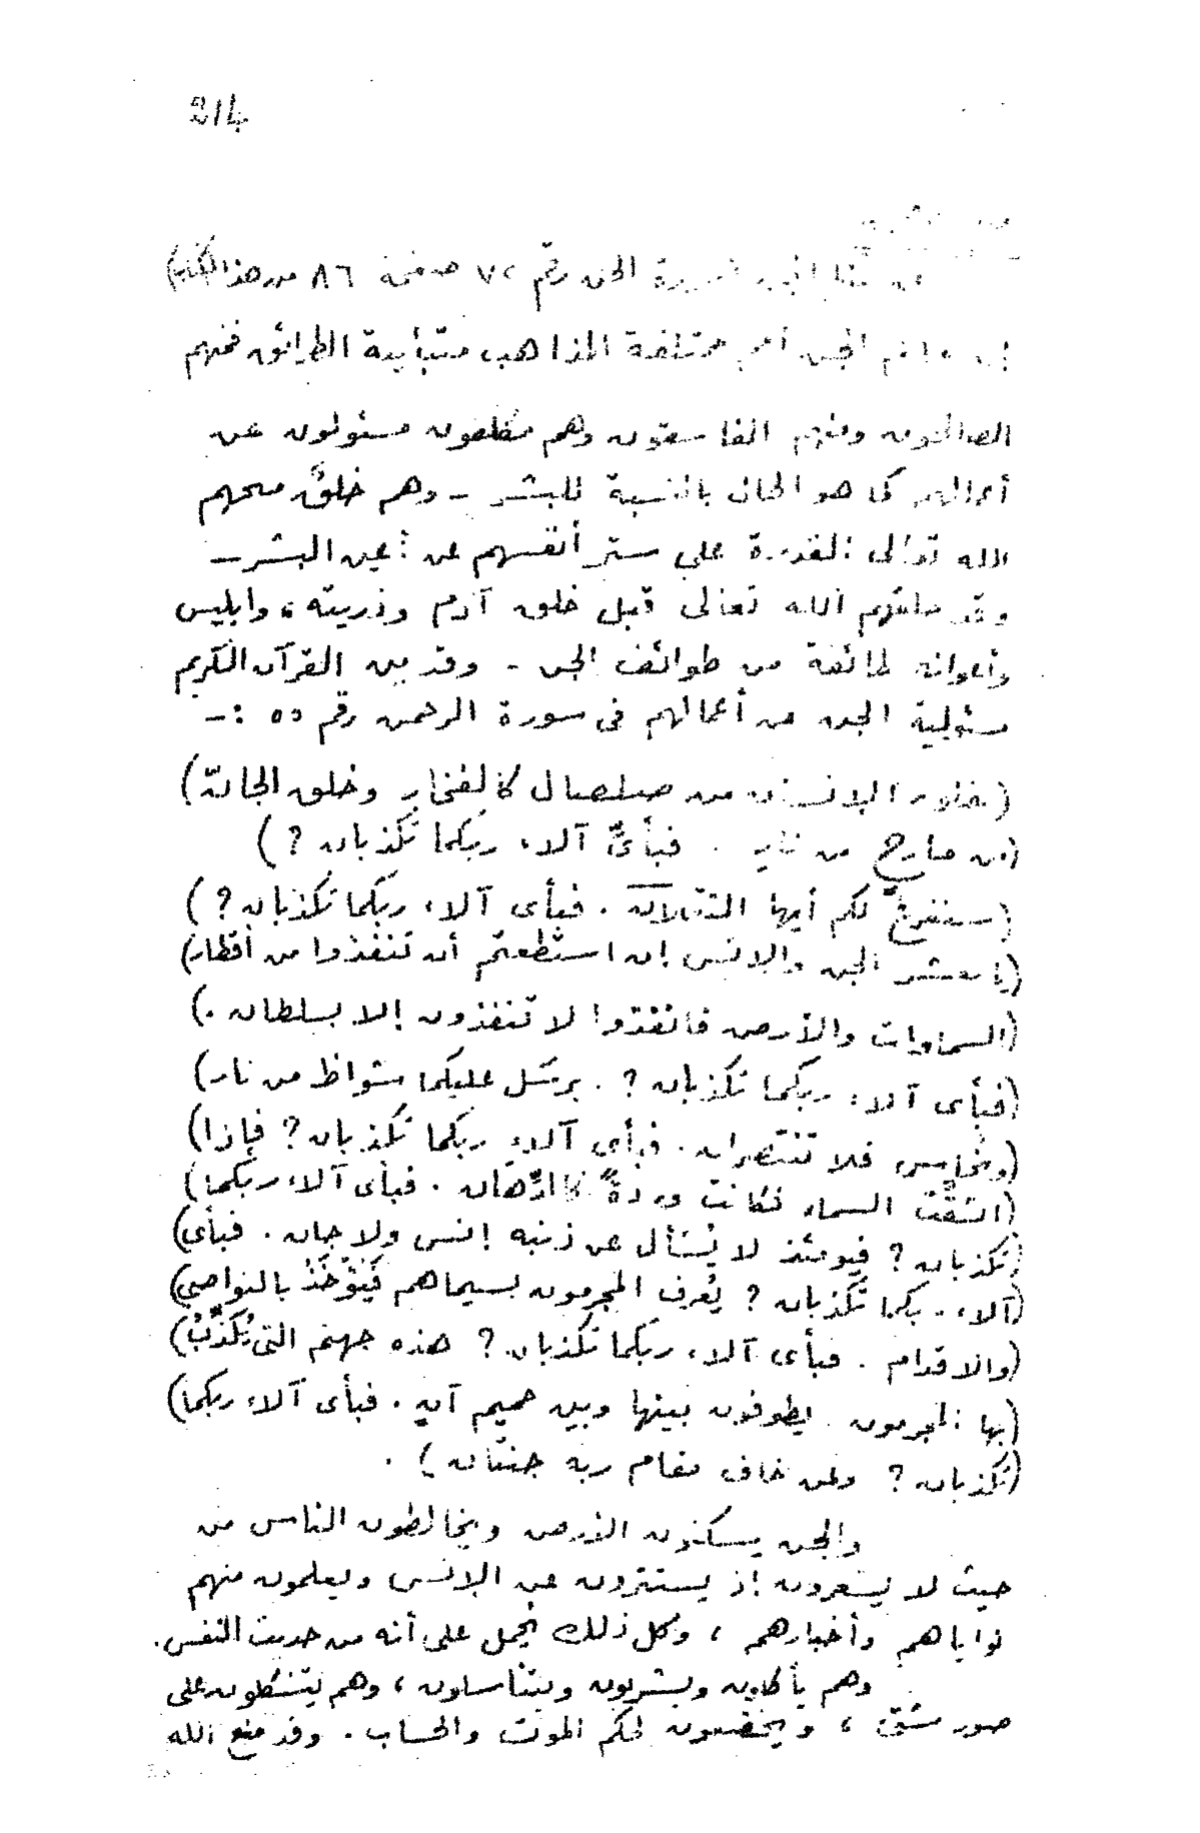 214
الجن رقم ٧٢ صفحة ٨٦ من هذا الكتاب)
الجن أمم مختلفة المذاهب متباينة الطرائق فمنهم
الصالحون ومنهم الفاسقون وهم مكلفون مسئولون عن
أعمالهم كما هو الحال بالنسبة للبشر - وهم خلقٌ منحهم
الله تعالى القدرة على ستر أنفسهم عن أعين البشر -
وقد خلقهم الله تعالى قبل خلق آدم وذريته، وابليس
وأعوانه طائفة من طوائف الجن - وقد بين القرآن الكريم
مسئولية الجن عن أعمالهم فى سورة الرحمن رقم ٥٥ :-
(خلق الإنسان من صلصال كالفخار وخلق الجانّ)
(من مارج من نار . فبأىِّ آلاء ربكما تكذبان ؟)
(سنفرغُ لكم أيها الثقلان . فبأى آلاء ربكما تكذبان ؟)
(يا معشر الجن والإنس إن استطعتم أن تنفذوا من أقطار)
(السماوات والأرض فانفذوا لا تنفذون إلا بسلطان .)
(فبأى آلاء ربكما تكذبان ؟ . يرسَل عليكما شواظ من نار)
(ونحاس فلا تنتصران . فبأى آلاء ربكما تكذبان ؟ فإذا)
(انشقّت السماء فكانت وردةً كالدِّهان . فبأى آلاء ربكما)
(تكذبان ؟ فيومئذ لا يُسأل عن ذنبه إنس ولا جان . فبأى)
(آلاء ربكما تكذبان ؟ يُعرف المجرمون بسيماهم فيُؤْخَذُ بالنواصى)
(والاقدام . فبأى آلاء ربكما تكذبان ؟ هذه جهنم التى يُكذِّبُ)
(بها المجرمون . يطوفون بينها وبين حميم آنٍ . فبأى آلاء ربكما)
(تكذبان ؟ ولمن خاف مقام ربه جنتان) .
والجن يسكنون الأرض ويخالطون الناس من
حيث لا يشعرون إذ يستترون عن الإنس ويعلمون منهم
نواياهم وأخبارهم ، وكل ذلك يُحمل على أنه من حديث النفس .
وهم يأكلون ويشربون ويتناسلون ، وهم يتشكلون على
صور شتى ، ويخضعون لحكم الموت والحساب . وقد منع الله